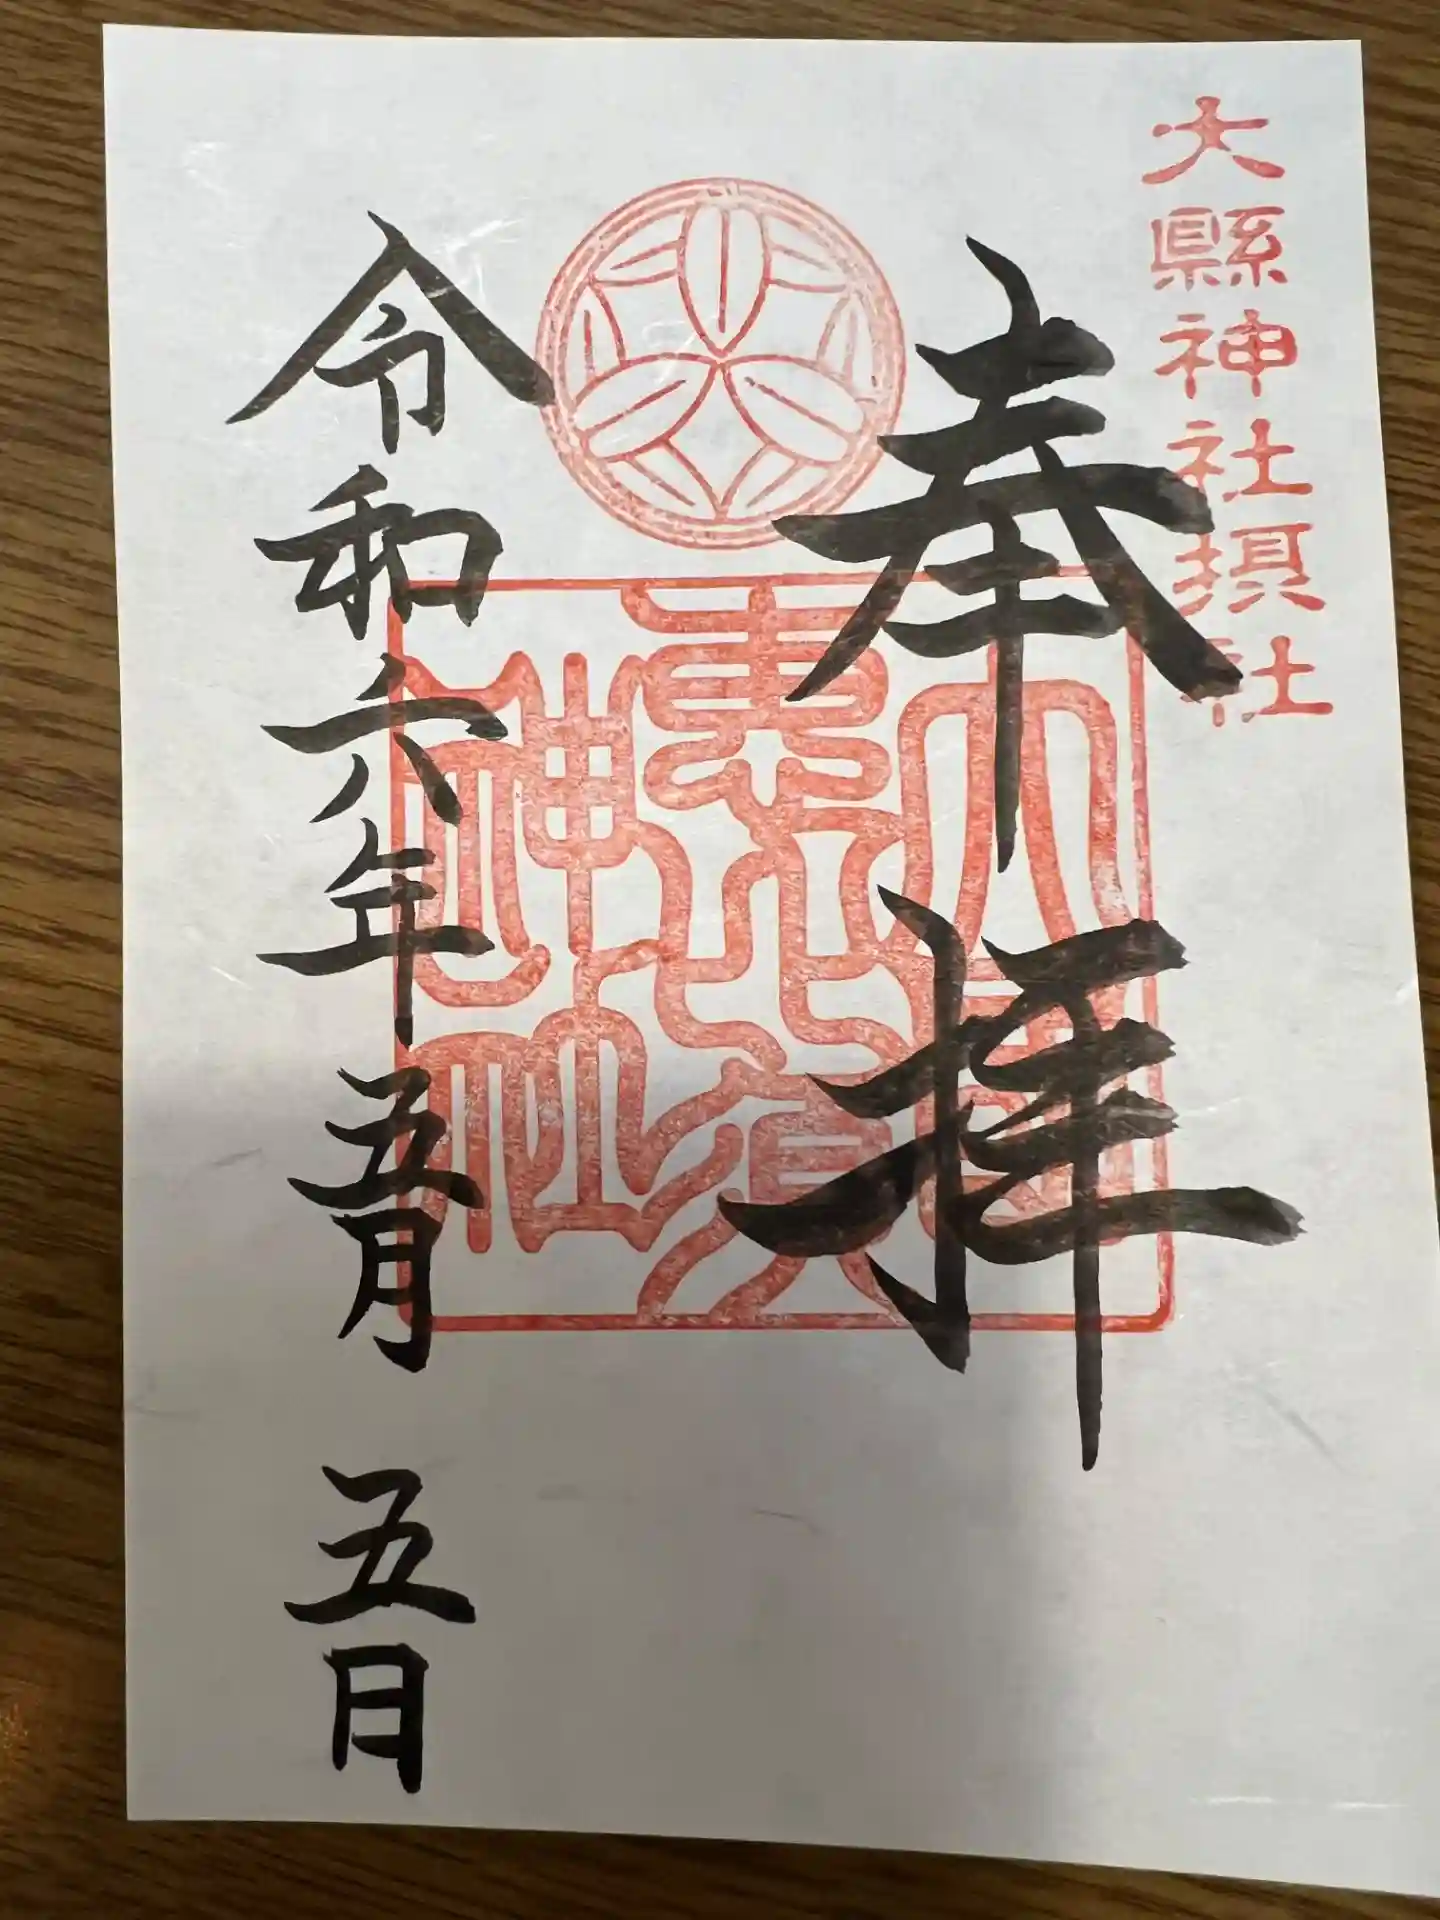 大縣神社摂社
奉拝
大國恵比須神社
令和六年五月五日